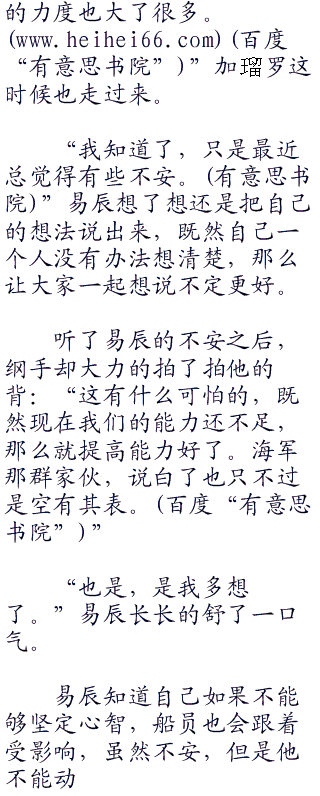 的力度也大了很多。
(www.heihei66.com)(百度
“有意思书院”)”加瑠罗这
时候也走过来。
“我知道了，只是最近
总觉得有些不安。(有意思书
院)”易辰想了想还是把自己
的想法说出来，既然自己一
个人没有办法想清楚，那么
让大家一起想说不定更好。
听了易辰的不安之后，
纲手却大力的拍了拍他的
背：“这有什么可怕的，既
然现在我们的能力还不足，
那么就提高能力好了。海军
那群家伙，说白了也只不过
是空有其表。(百度“有意思
书院”)”
“也是，是我多想
了。”易辰长长的舒了一口
气。
易辰知道自己如果不能
够坚定心智，船员也会跟着
受影响，虽然不安，但是他
不能动